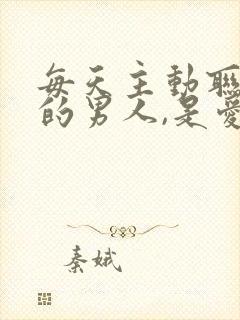 每天主動聯
的男人,是愛
秦娥